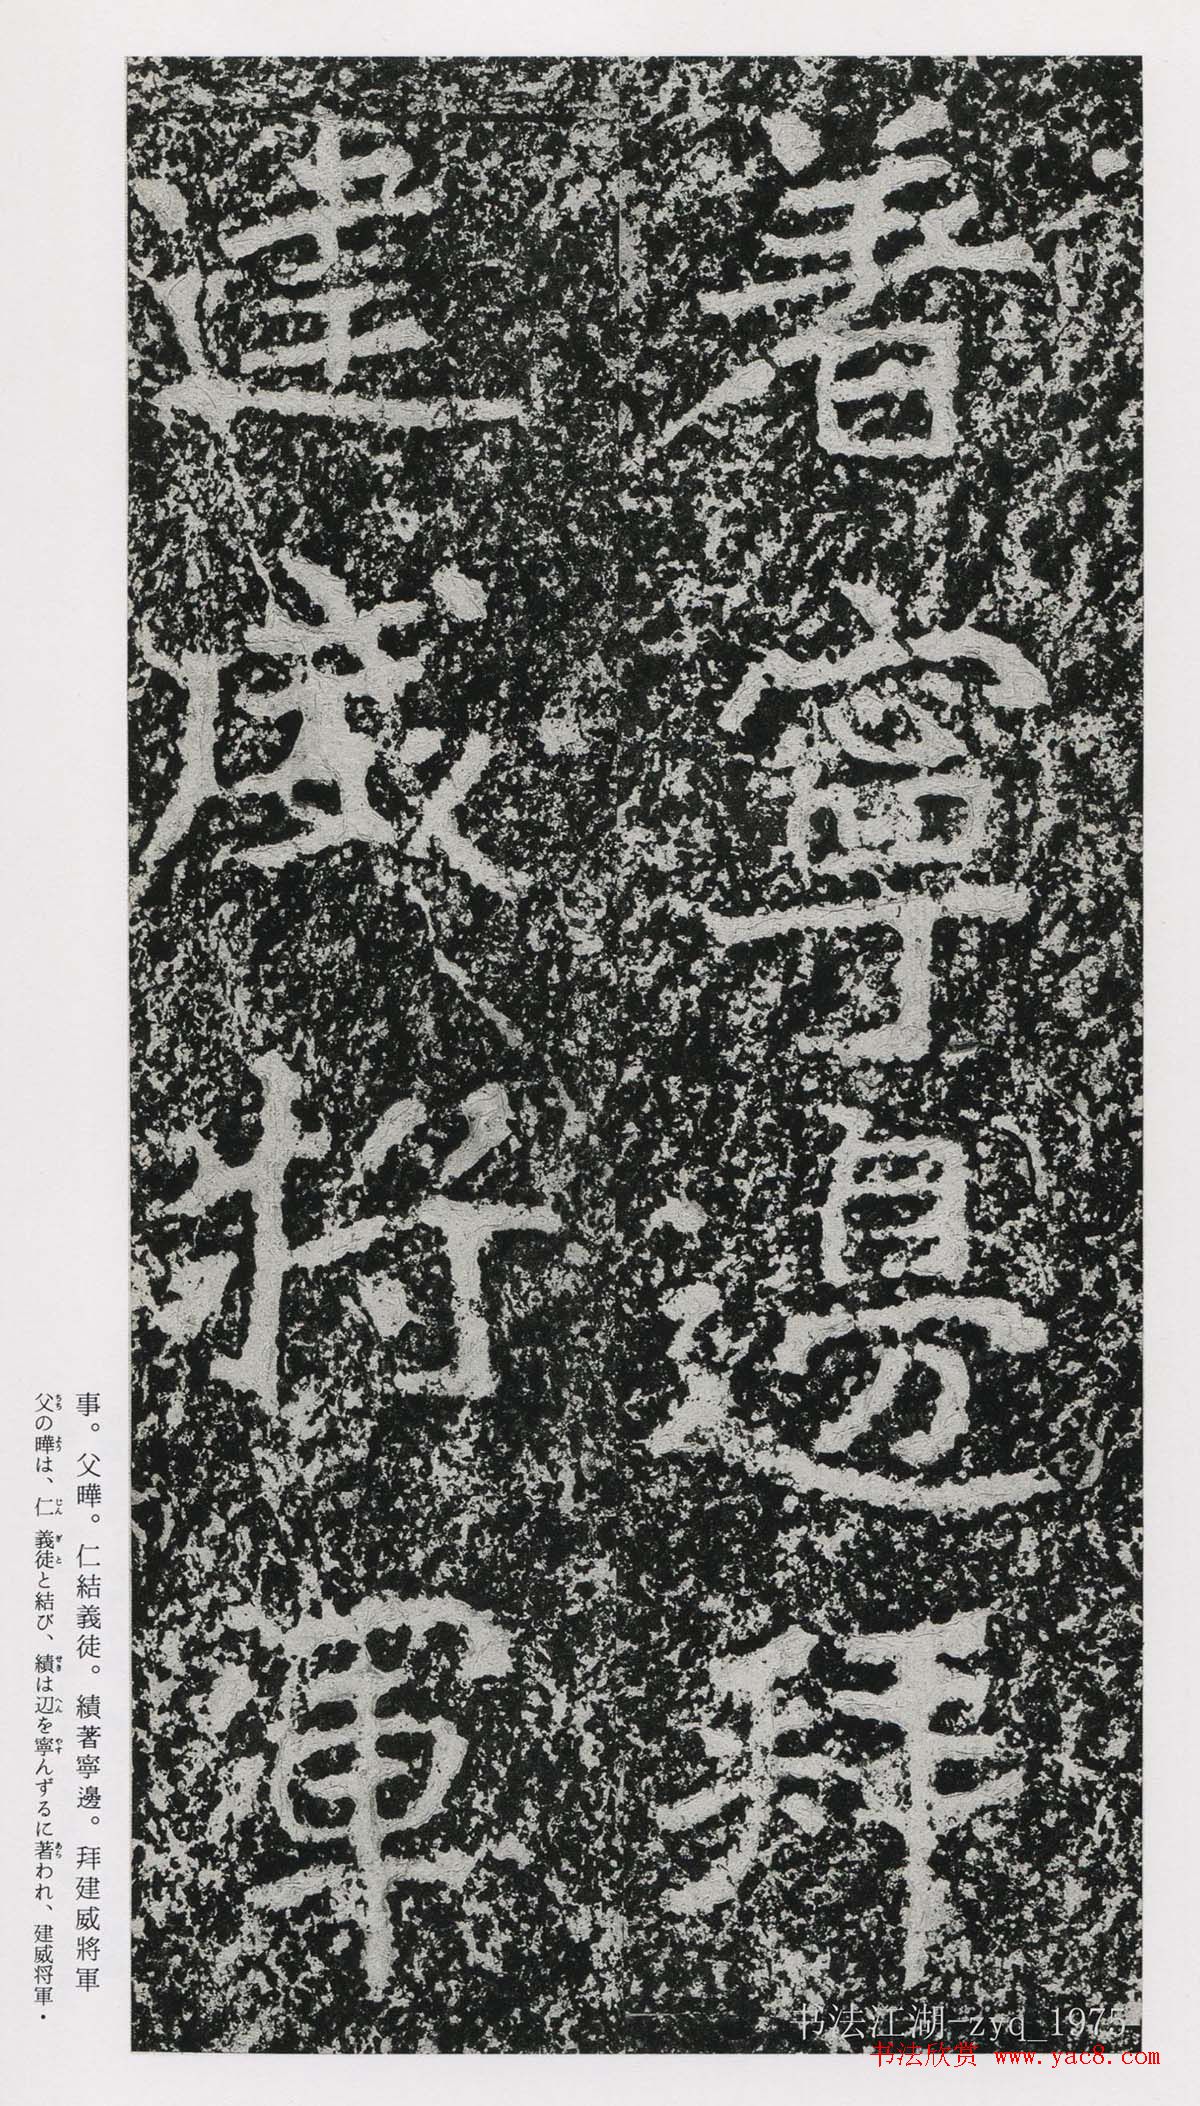 著寧邊拜
建威將軍
事。父曄。仁結義徒。績著寧邊。拜建威將軍
父の曄は、仁義徒と結び、績は辺を寧んずるに著われ、建威将軍・
ちち よう じん ぎと せき へん やす あら
书法江湖-zyq_1975
书法欣赏 www.yac8.com